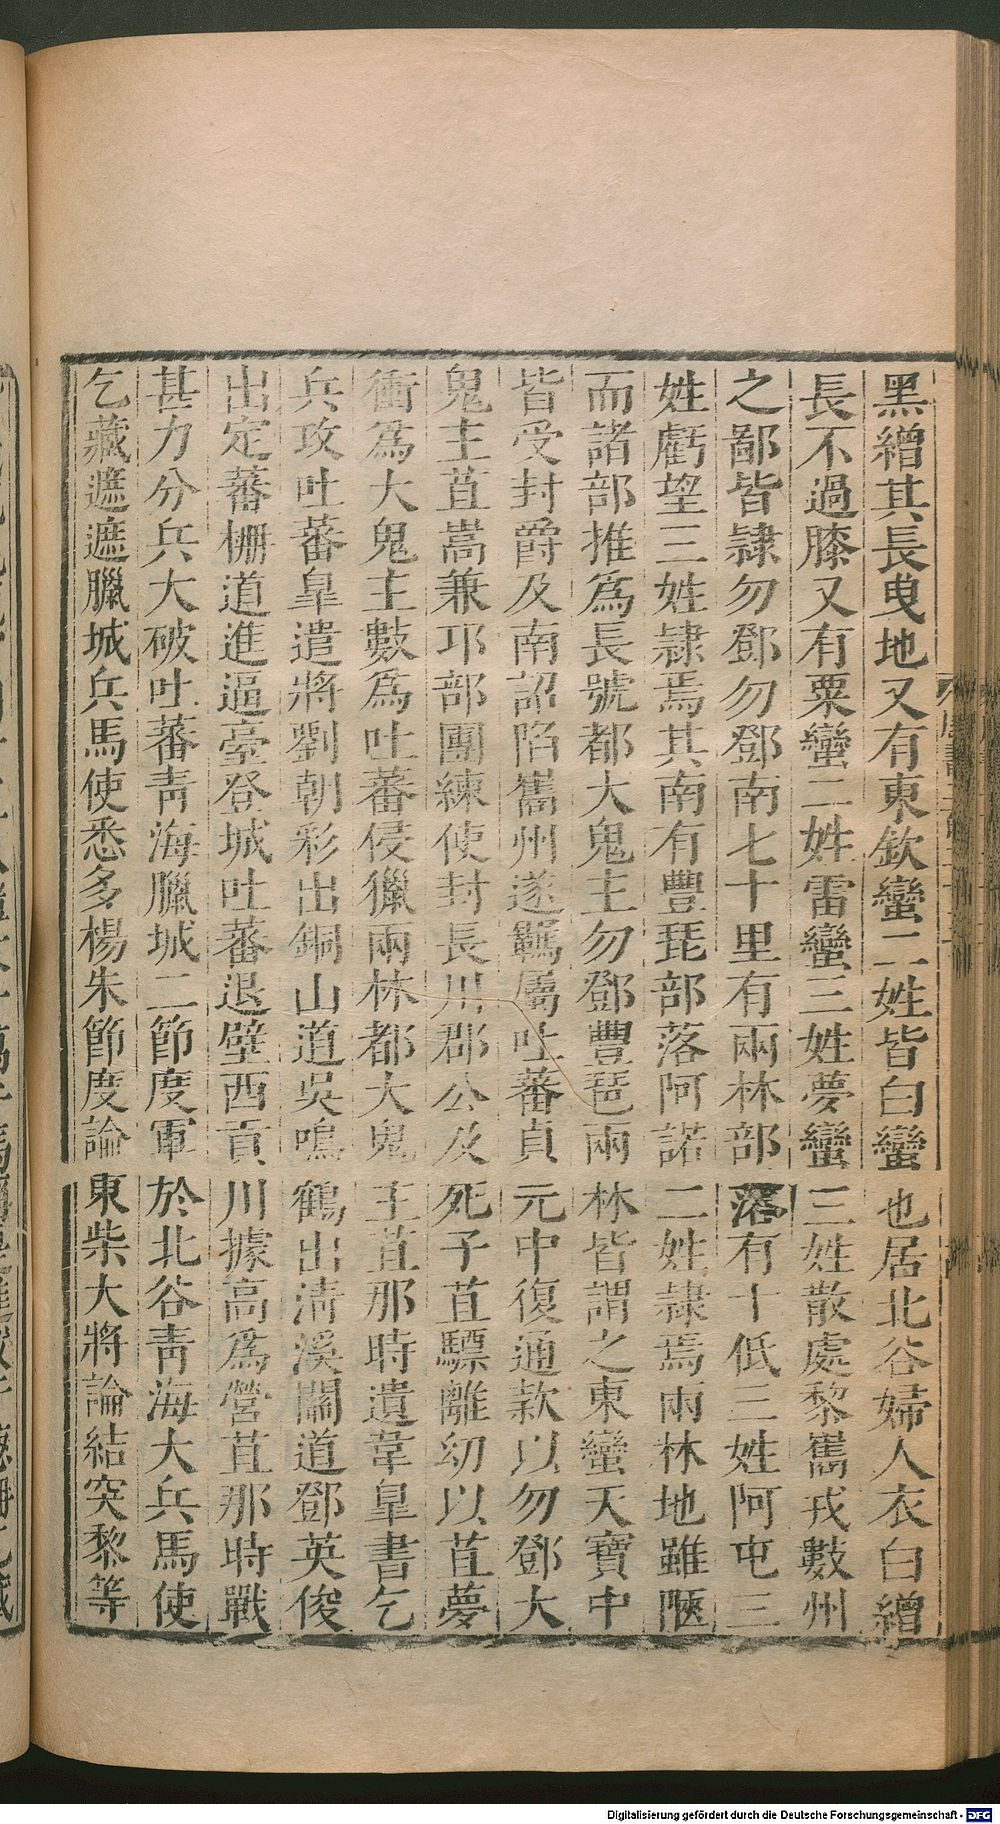 黑繒其長曳地又有東欽蠻二姓皆白蠻也居北谷婦人衣白繒
長不過膝又有粟蠻二姓雷蠻三姓夢蠻三姓散處黎巂戎數州
之鄙皆隸勿鄧勿鄧南七十里有兩林部落有十低三姓阿屯三
姓虧望三姓隸焉其南有豐琵部落阿諾二姓隸焉兩林地雖陿
而諸部推爲長號都大鬼主勿鄧豐琶兩林皆謂之東蠻天寶中
皆受封爵及南詔陷巂州遂羈屬吐蕃貞元中復通款以勿鄧大
鬼主苴嵩兼邛部團練使封長川郡公及死子苴驃離幼以苴夢
衝爲大鬼主數爲吐蕃侵獵兩林都大鬼王苴那時遺韋皐書乞
兵攻吐蕃皐遣將劉朝彩出銅山道吳鳴鶴出淸溪關道鄧英俊
出定蕃柵道進逼臺登城吐蕃退壁西貢川據高爲營苴那時戰
甚力分兵大破吐蕃靑海臘城二節度軍於北谷靑海大兵馬使
乞藏遮遮臘城兵馬使悉多楊朱節度論東柴大將論結突黎等
Digitalisierung gefördert durch die Deutsche Forschungsgemeinschaft - DFG